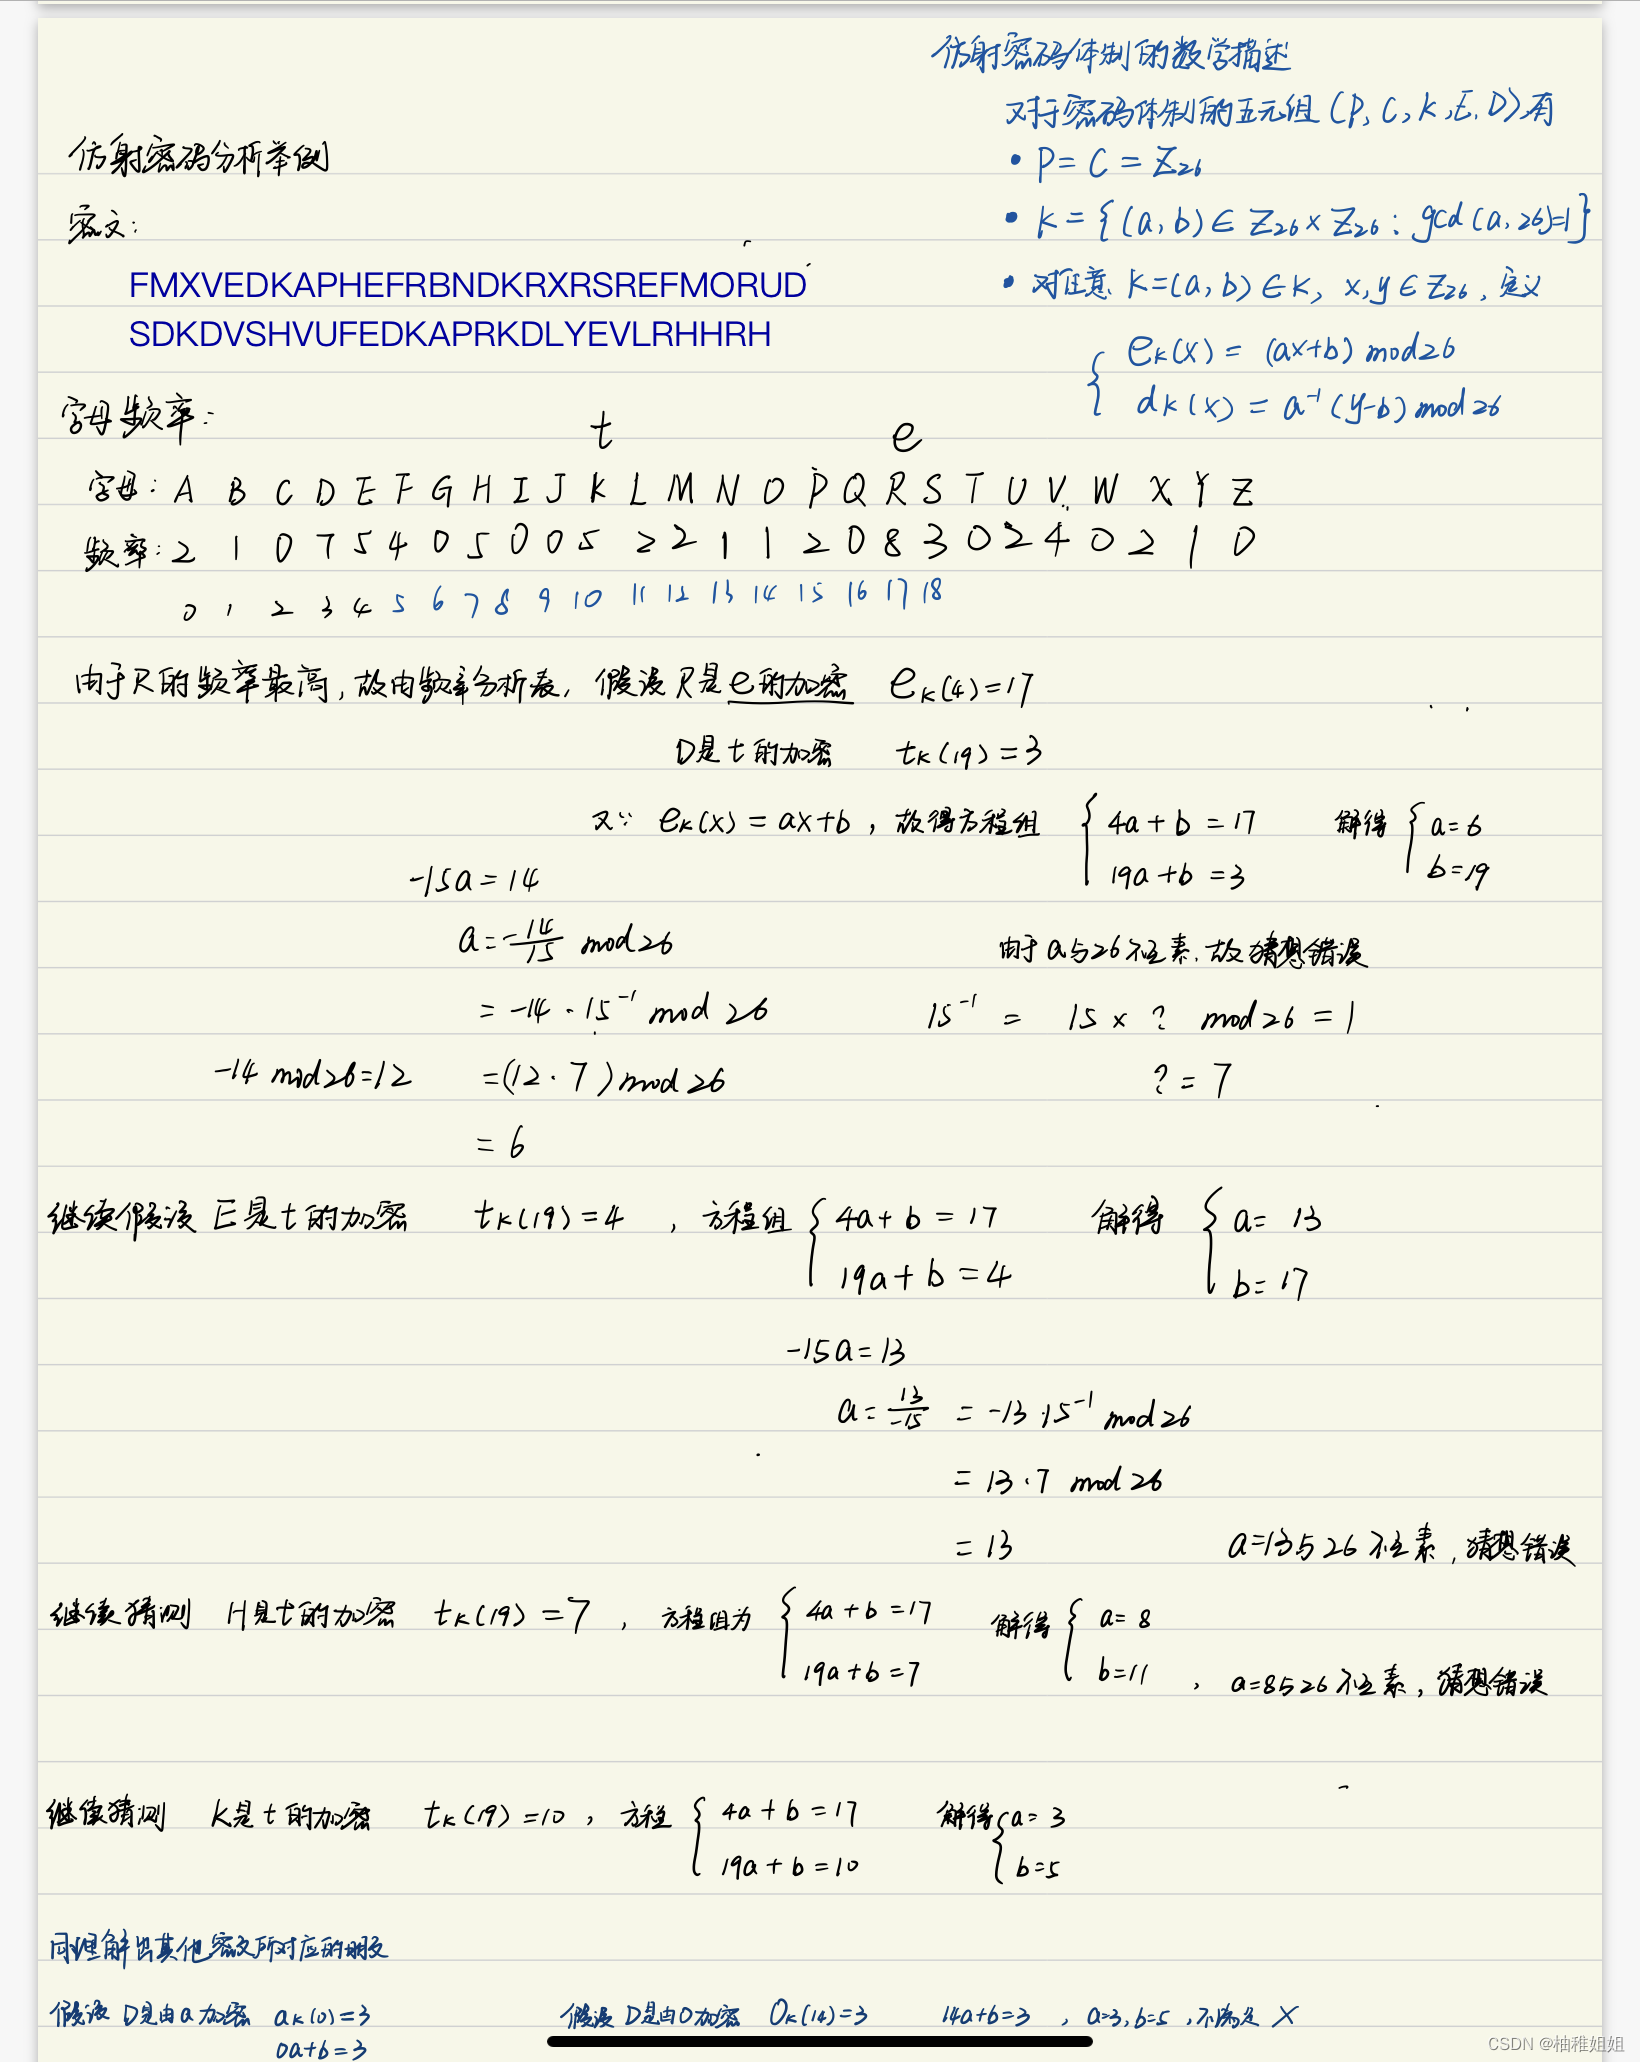 仿射密码体制的数学描述
对于密码体制的五元组 (P, C, K, E, D) 有
• P = C = Z₂₆
• K = {(a, b) ∈ Z₂₆ × Z₂₆ : gcd (a, 26)=1}
• 对任意 K=(a, b) ∈ K, x, y ∈ Z₂₆, 定义
{ eₖ(x) = (ax+b) mod 26
dₖ(x) = a⁻¹ (y-b) mod 26
仿射密码分析举例
密文:
FMXVEDKAPHEFRBNDKRXRSREFMORUD
SDKDVSHVUFEDKAPRKDLYEVLRHHRH
字母频率:
t e
字母: A B C D E F G H I J K L M N O P Q R S T U V W X Y Z
频率: 2 1 0 7 5 4 0 5 0 0 5 2 2 1 1 2 0 8 3 0 2 4 0 2 1 0
0 1 2 3 4 5 6 7 8 9 10 11 12 13 14 15 16 17 18
由于R的频率最高, 故由频率分析表, 假设R是e的加密 eₖ(4)=17
D是t的加密 tₖ(19)=3
又∵ eₖ(x) = ax+b, 故得方程组 { 4a+b = 17 解得 { a=6
19a+b = 3 b=19
-15a = 14
a = -14/15 mod 26 由于a与26不互素, 故猜想错误
= -14 · 15⁻¹ mod 26 15⁻¹ = 15 × ? mod 26 = 1
-14 mod 26=12 =(12 · 7) mod 26 ? = 7
= 6
继续假设 E是t的加密 tₖ(19)=4, 方程组 { 4a+b = 17 解得 { a= 13
19a+b = 4 b= 17
-15a = 13
a= 13/-15 = -13 · 15⁻¹ mod 26
= 13 · 7 mod 26
= 13 a=13与26不互素, 猜想错误
继续猜测 H是t的加密 tₖ(19)=7, 方程组为 { 4a+b=17 解得 { a= 8
19a+b=7 b=11, a=8与26不互素, 猜想错误
继续猜测 K是t的加密 tₖ(19)=10, 方程 { 4a+b=17 解得 { a= 3
19a+b=10 b=5
同理解出其他密文所对应的明文
假设 D是由a加密 aₖ(0)=3 假设 D是由O加密 Oₖ(14)=3 14a+b=3, a=3, b=5, 不满足 ×
0a+b=3
CSDN @柚稚姐姐